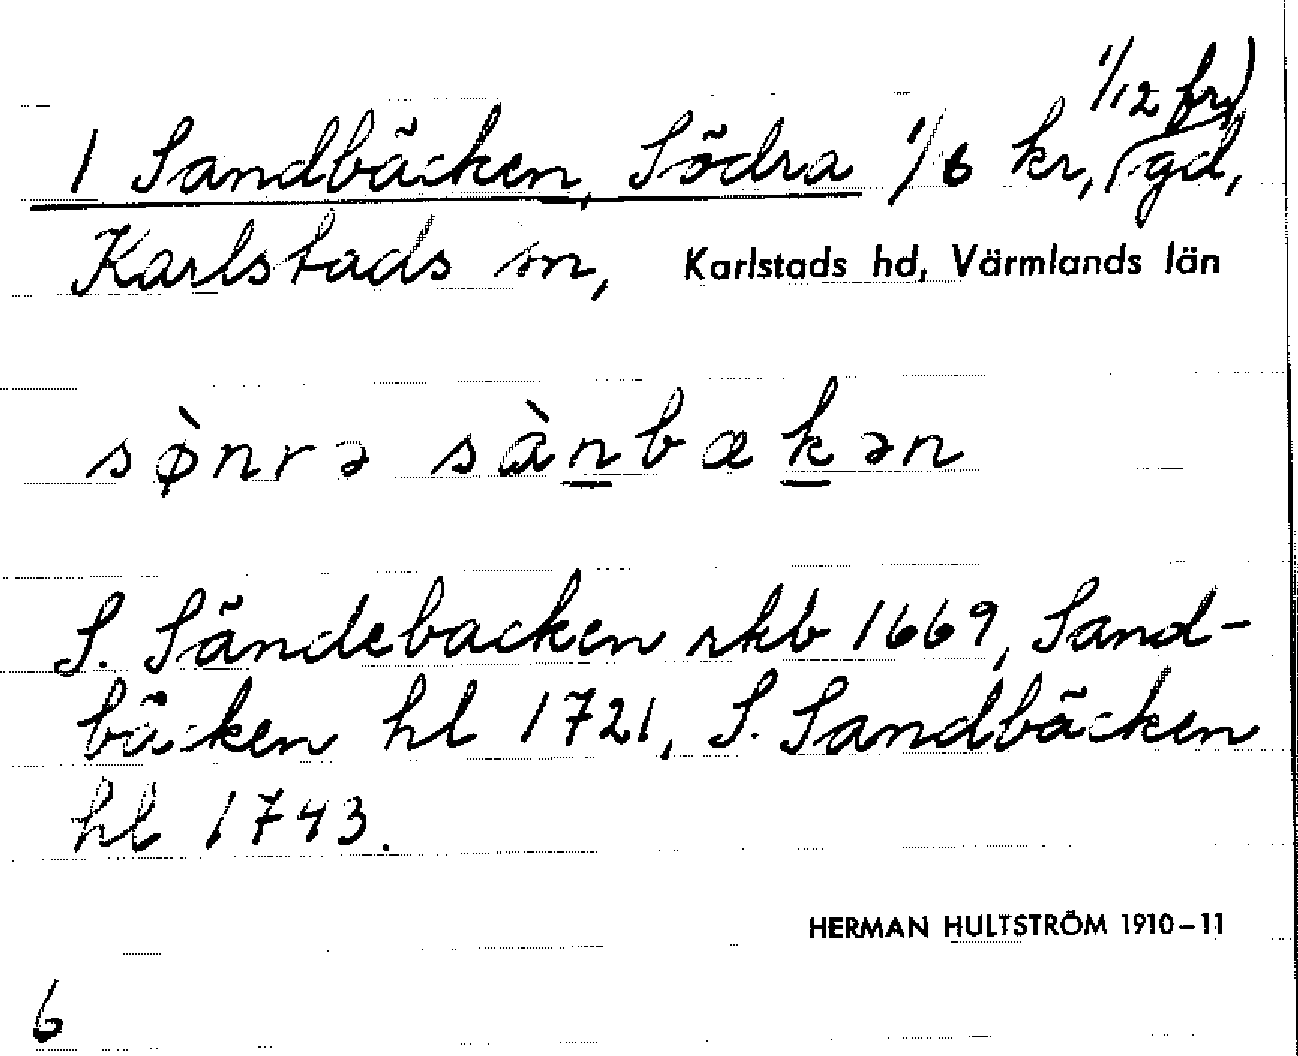 1 Sandbäcken, Södra 1/6 kr, (1/12 fr) gd,
Karlstads sn, Karlstads hd, Värmlands län
sø̀nrə sàn̲bæk̲ən
S. Sändebacken skb 1669, Sand-
bäcken hl 1721, S. Sandbäcken
hl 1743.
HERMAN HULTSTRÖM 1910–11
6